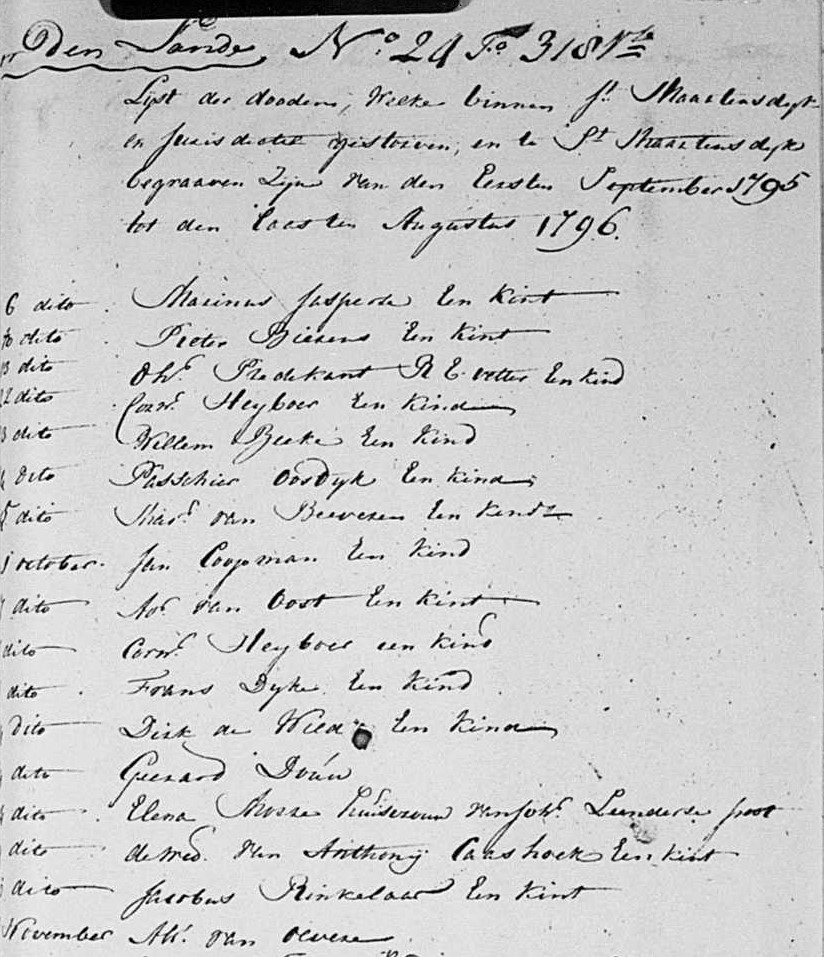 Den Lande N.o 24 F.o 318 V.so
Lyst der dooden, Welke binnen S.t Maartensdyk
en Jurisdictie gestorven, en te S.t Maartensdyk
begraaven Zyn van den Eersten September 1795
tot den laasten Augustus 1796.
6 dito Marinus Jasperse Een kint
dito Pieter Bierens Een kint
dito Predikant R E vetter Een kind
dito Corn.s Heyboer Een kind
dito Willem Beeke Een kind
dito Passchier Oosdyk Een kind
dito van Beeveren Een
october Jan Coopman Een kind
dito van Oost Een kint
dito Corn.s Heyboer een kind
dito Frans Dyke Een kind
dito Dirk de Een kind
dito Geerard Douw
dito Elena huisvrouw van Joh.s Leenderse
dito de wed. van Anthony Caashoek Een kint
dito Jacobus Rinkelaar Een kint
November van